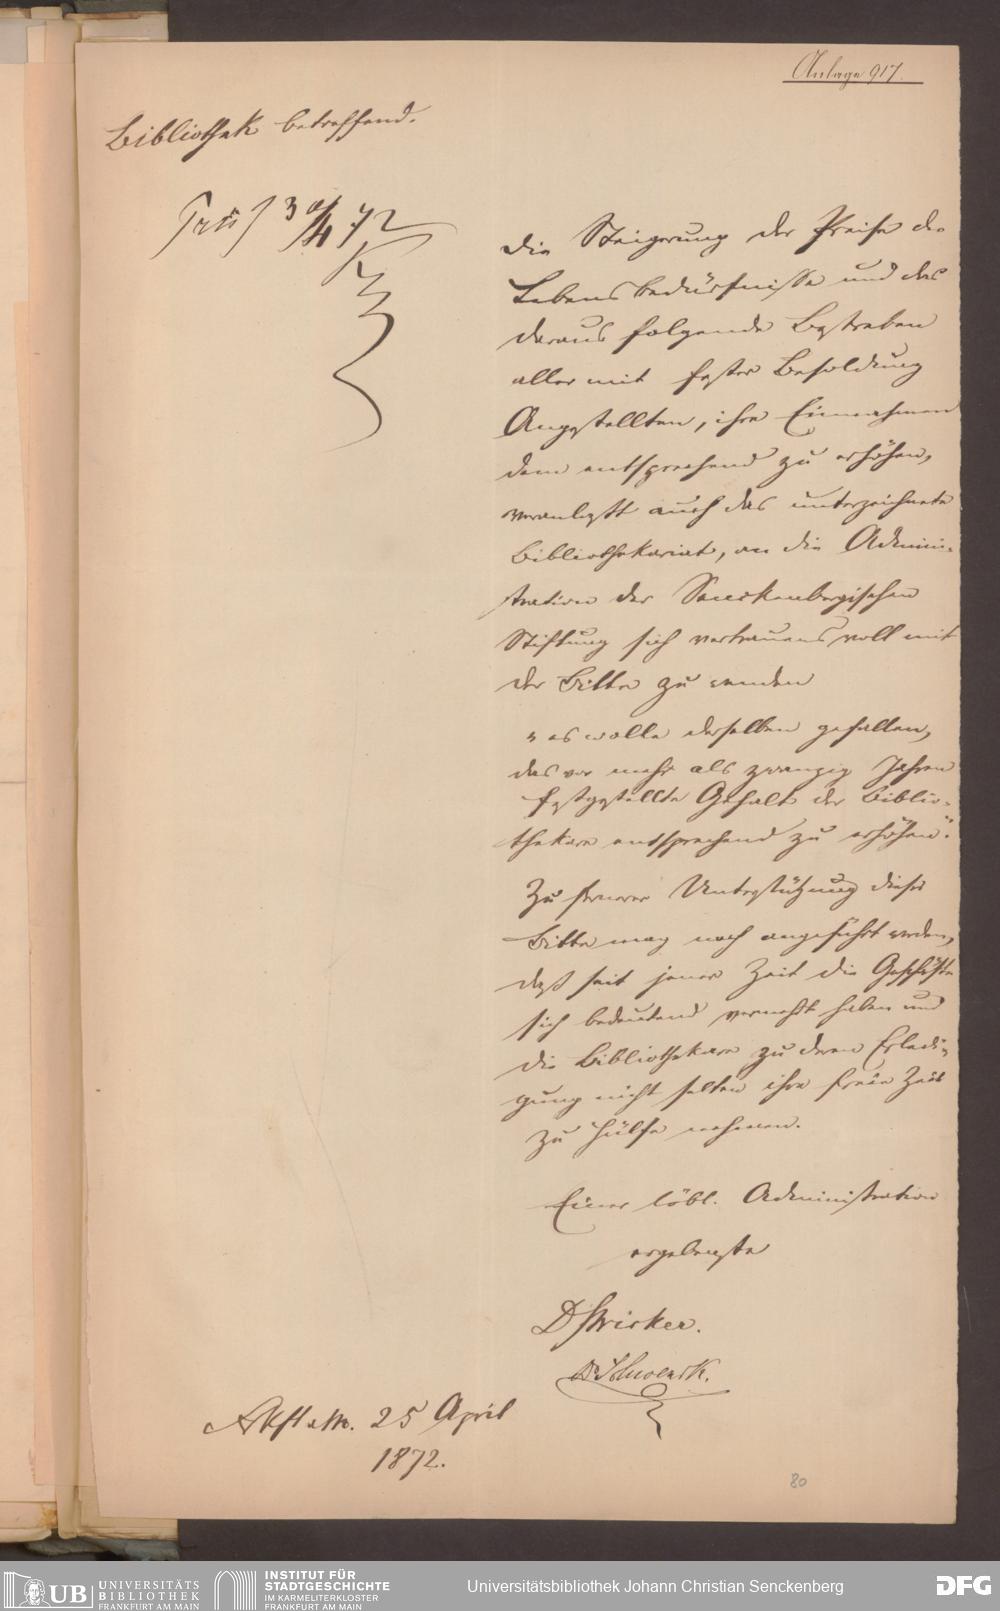 Anlage 917.
Bibliothek betreffend.
Präs 30/4 72
Die Steigerung der Preise der
Lebensbedürfnisse und das
daraus folgende Bestreben
aller mit fester Besoldung
Angestellten, ihre Einnahmen
dem entsprechend zu erhöhen,
veranlaßt auch das unterzeichnete
Bibliothekariat, an die Admini-
stration der Senckenbergischen
Stiftung sich vertrauensvoll mit
der Bitte zu wenden
"es wolle derselben gefallen,
das vor mehr als zwanzig Jahren
festgestellte Gehalt der Biblio-
thekare entsprechend zu erhöhen".
Zu fernerer Unterstützung dieser
Bitte mag noch angeführt werden,
daß seit jener Zeit die Geschäfte
sich bedeutend vermehrt haben und
die Bibliothekare zu deren Erledi-
gung nicht selten ihre freie Zeit
zu Hülfe nehmen.
Einer löbl. Administration
ergebenste
Dr Stricker.
Dr Schwenck.
Frkft a/M. 25 April
1872.
80
UB UNIVERSITÄTS
BIBLIOTHEK
FRANKFURT AM MAIN
INSTITUT FÜR
STADTGESCHICHTE
IM KARMELITERKLOSTER
FRANKFURT AM MAIN
Universitätsbibliothek Johann Christian Senckenberg
DFG